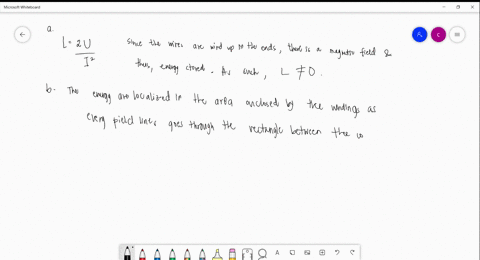 Microsoft Whiteboard
a.
L = 2U since the wires are wind up to the ends, there is a magnetic field &
I² thus, energy stored. As such, L ≠ 0.
b. The energy are localized in the area enclosed by the windings as
every field lines goes through the rectangle between the